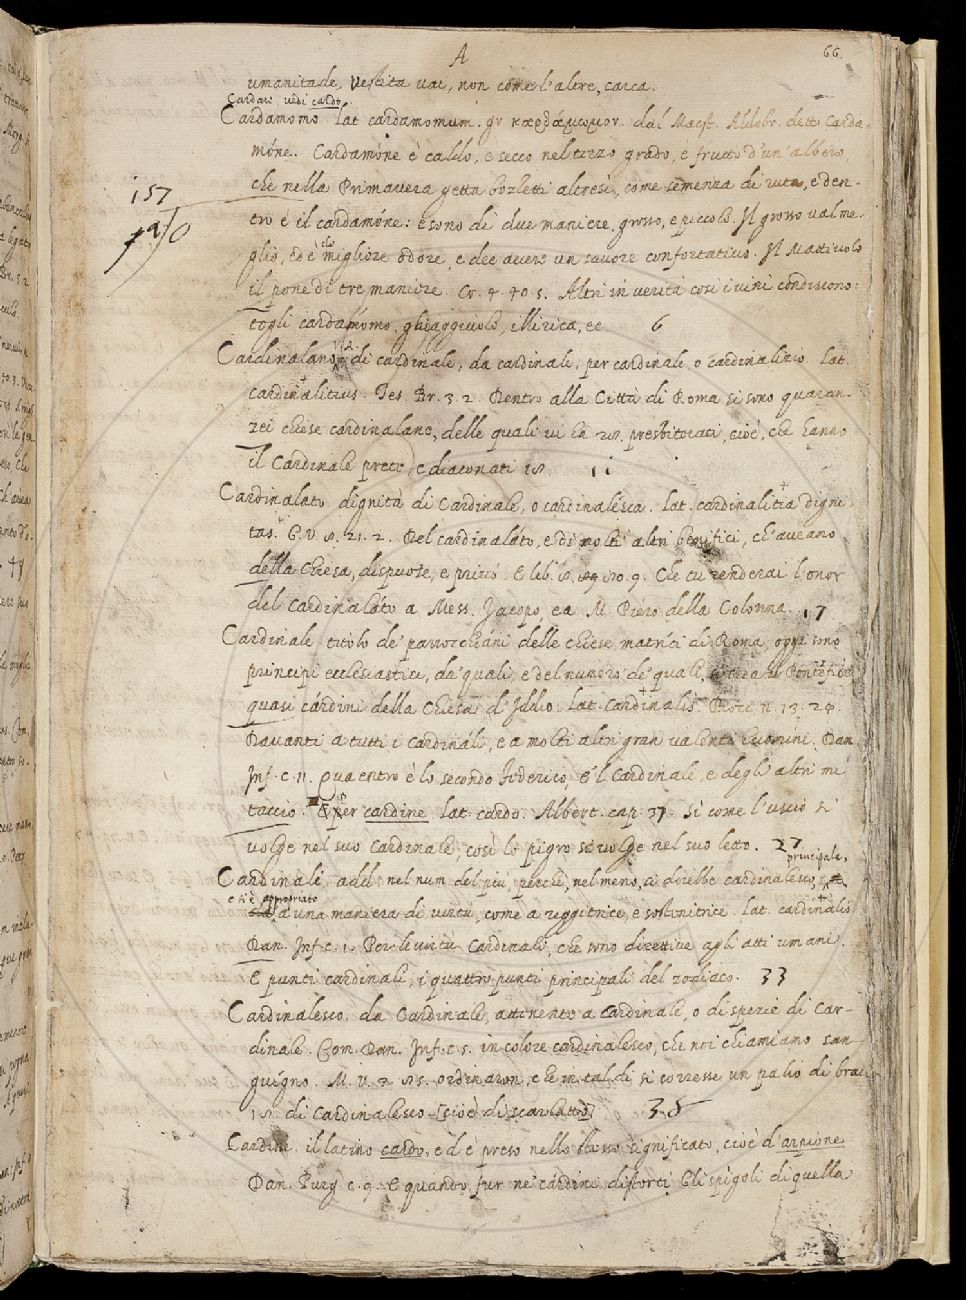 A
66.
umanitade, vestita vai, non come l'altre, carca.
Cardare, vedi cardo.
Cardamomo. Lat. cardamomum. gr. καρδάμωμον. dal Maest. Aldobr. detto Carda-
móne. Cardamóne è caldo, e secco nel terzo grado, è frutto d'un albero,
che nella Primavera getta bozzetti altresì, come semenza di ruta, e den-
157
tro è il cardamóne: e sono di due maniere, grosso, e piccolo. Il grosso val me-
glio, ed è di migliore odore, e dee avere un savore confortativo. Il Mattiuolo
il pone di tre maniere. Cr. 4. 40. 5. Altri in verità così i vini condiscono:
togli cardamomo, ghiaggiuolo, illirica, ec. 6
Cardinalano, di cardinale, da cardinale, per cardinale, o cardinalizio. Lat.
cardinalitius. Tes. Br. 3. 2. Dentro alla Città di Roma si sono quaran-
zei chiese cardinalane, delle quali vi ha 28. presbiterati, cioè, che hanno
il Cardinale prete, e diaconati 18. 11
Cardinalato dignità di Cardinale, o cardinalesca. Lat. cardinalitia digni-
tas. G. V. 8. 21. 2. Del cardinaláto, e di molti altri benifici, ch'aveano
della Chiesa, dispuose, e privò. E lib. 8. 80. 9. Che tu renderai l'onor
del cardinaláto a Mess. Jacopo, e a M. Piero della Colonna. 17
Cardinale titolo de' parrocchiáni delle chiese matríci di Roma oggi sono
principi ecclesiastici, da' quali, e del numero de' quali, si crea il Pontefice
quasi cárdini della Chiesa d'Iddio. Lat. Cardinalis. Bocc. n. 13. 24.
Davanti a tutti i cardinali, e a molti altri gran valenti huomini. Dan.
Inf. c. 11. Qua entro è lo secondo Federico, E'l Cardinale, e degli altri mi
taccio. Per cardine. Lat. cardo. Albert. cap. 37. Si come l'uscio si
volge nel suo Cardinale, così lo pigro si volge nel suo letto. 27
principale,
Cardinali add. nel num. del più, perchè, nel meno, si direbbe cardinalesco,
ch'è appropriato
a una maniera di virtù, come a reggitrice, e sostenitrice. Lat. cardinalis
Dan. Inf. c. 1. Per le virtù Cardinali, che sono direttive agli atti umani.
E punti cardinali, i quattro punti principali del zodiaco. 33
Cardinalesco. da Cardinale, attinente a cardinale, o di spezie di Car-
dinale. Com. Dan. Inf. c. 5. in colore cardinalesco, che noi chiamiamo san-
guigno. M. V. 2. ordinaron, che in tal dì si corresse un palio di brac
di Cardinalesco [cioè di scarlatto] 38
Cardine. il latino cardo, ed è preso nello stesso significato, cioè d'arpione
Dan. Purg. c. 9. E quando fur ne' cardini distorti Gli spigoli di quella